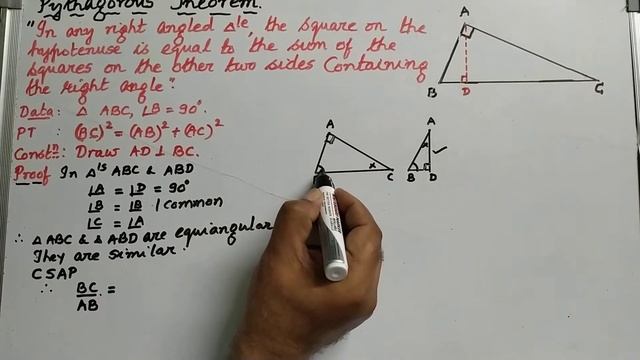 Pythagorous Theorem.
"In any right angled Δle, the square on the
hypotenuse is equal to the sum of the
squares on the other two sides Containing
the right angle".
Data: Δ ABC, ∠B = 90°.
PT : (BC)² = (AB)² + (AC)²
Constⁿ: Draw AD ⊥ BC.
Proof In Δls ABC & ABD
∠A = ∠D = 90°
∠B = ∠B / common
∠C = ∠A
∴ Δ ABC & Δ ABD are equiangular
They are similar.
CSAP
∴ BC/AB =
A
B D C
A
C
x
A
x
B D